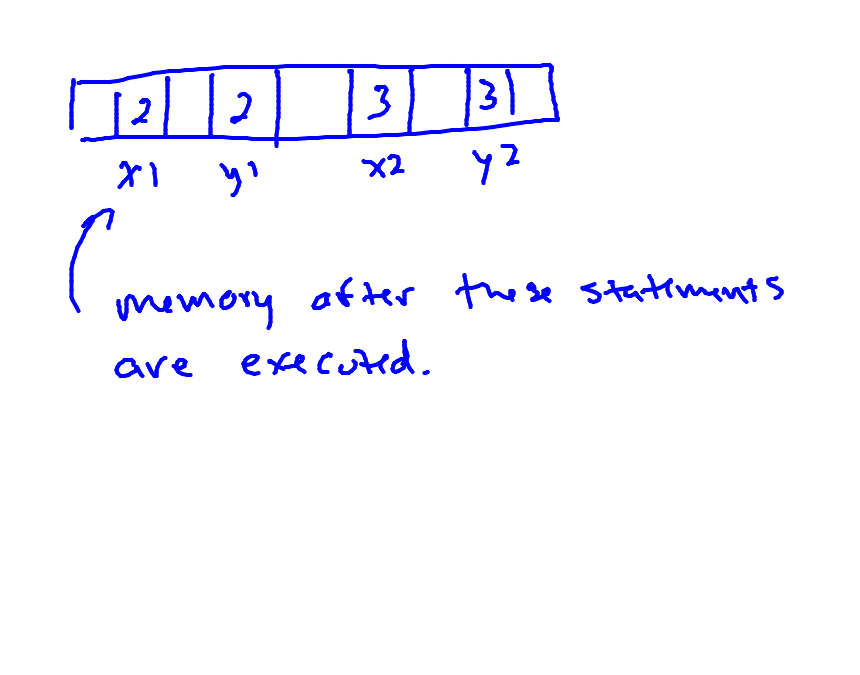 2 2 3 3
x1 y1 x2 y2
memory after these statements
are executed.